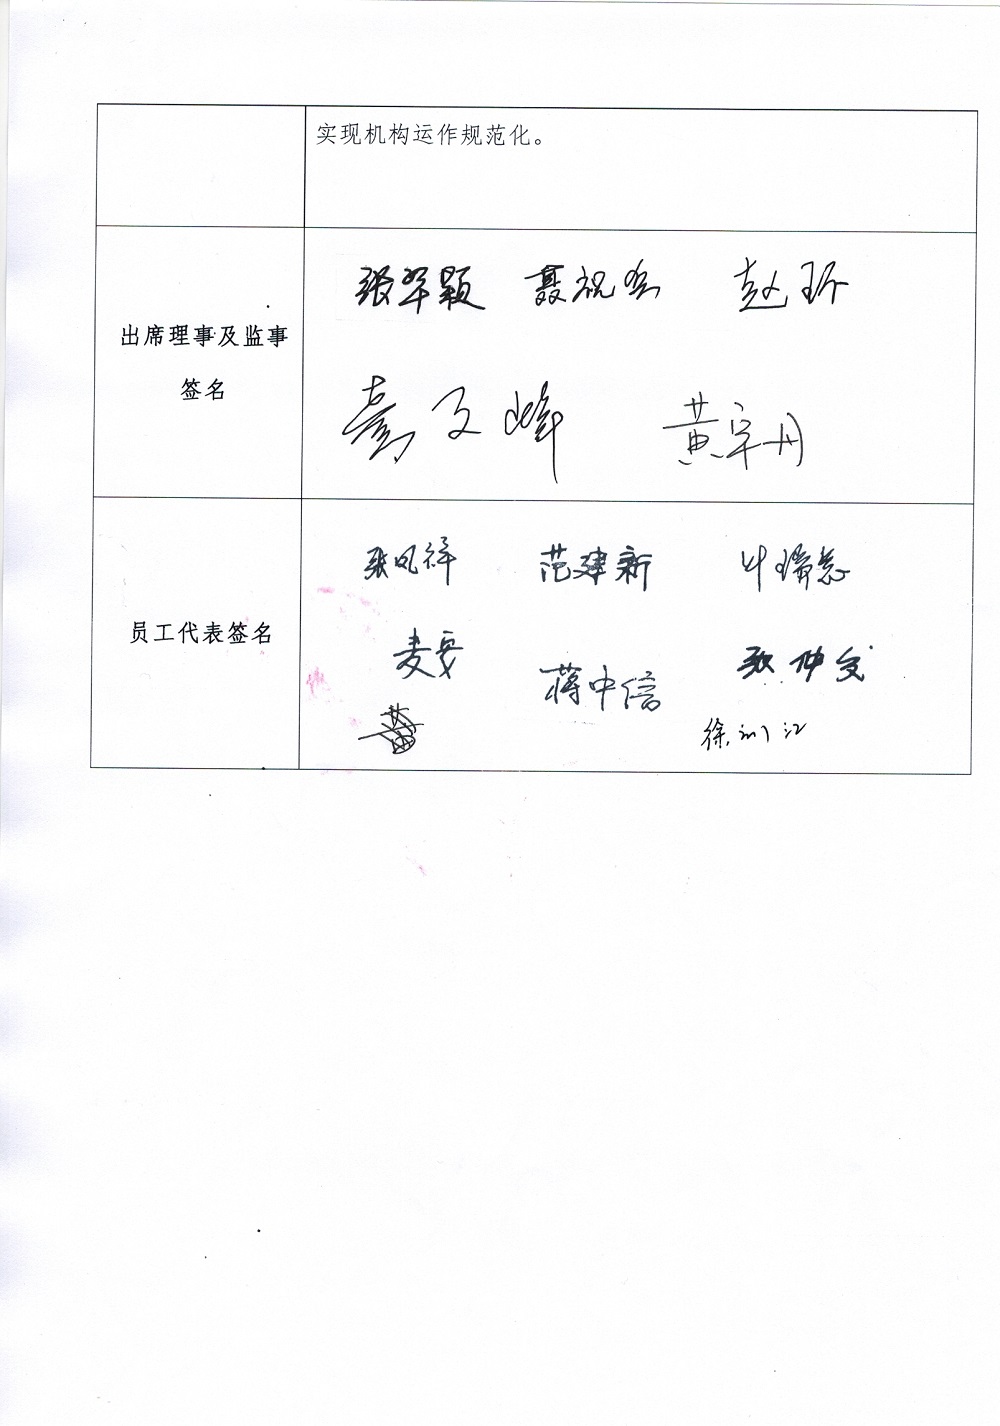 实现机构运作规范化。
出席理事及监事
签名
张军颖 聂祝兵 赵环
袁文峰 黄宇丹
员工代表签名
张凤祥 范建新
麦安 蒋中信 张仲文
徐训江